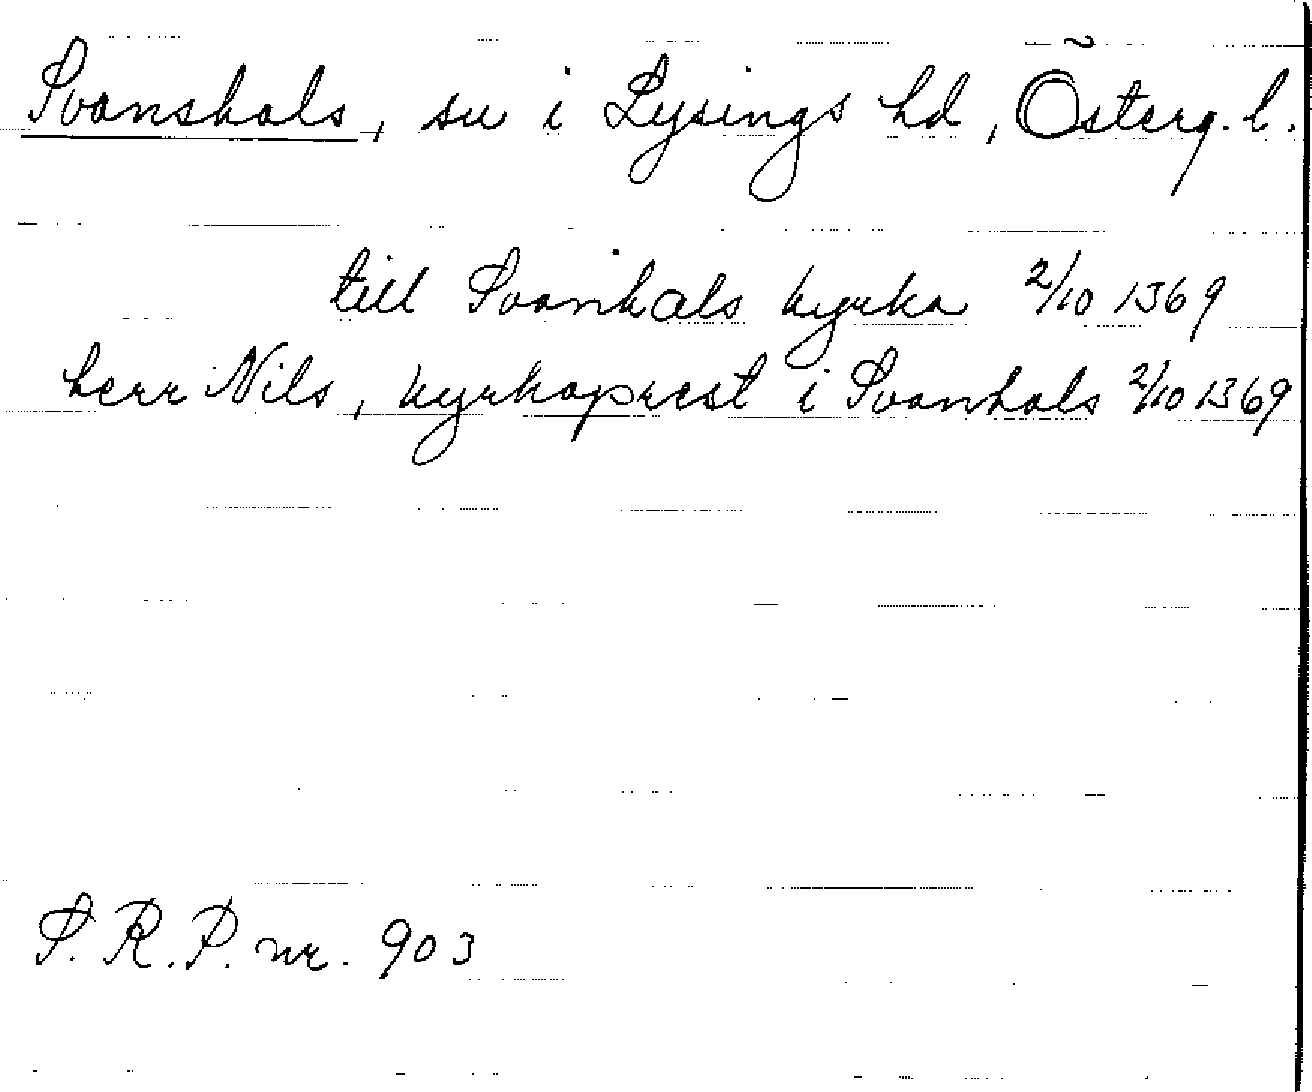 Svanshals, sn i Lysings hd, Österg. l.
till Svanhals kyrka 2/10 1369
herr Nils, kyrkoprest i Svanhals 2/10 1369
S. R. P. nr. 903